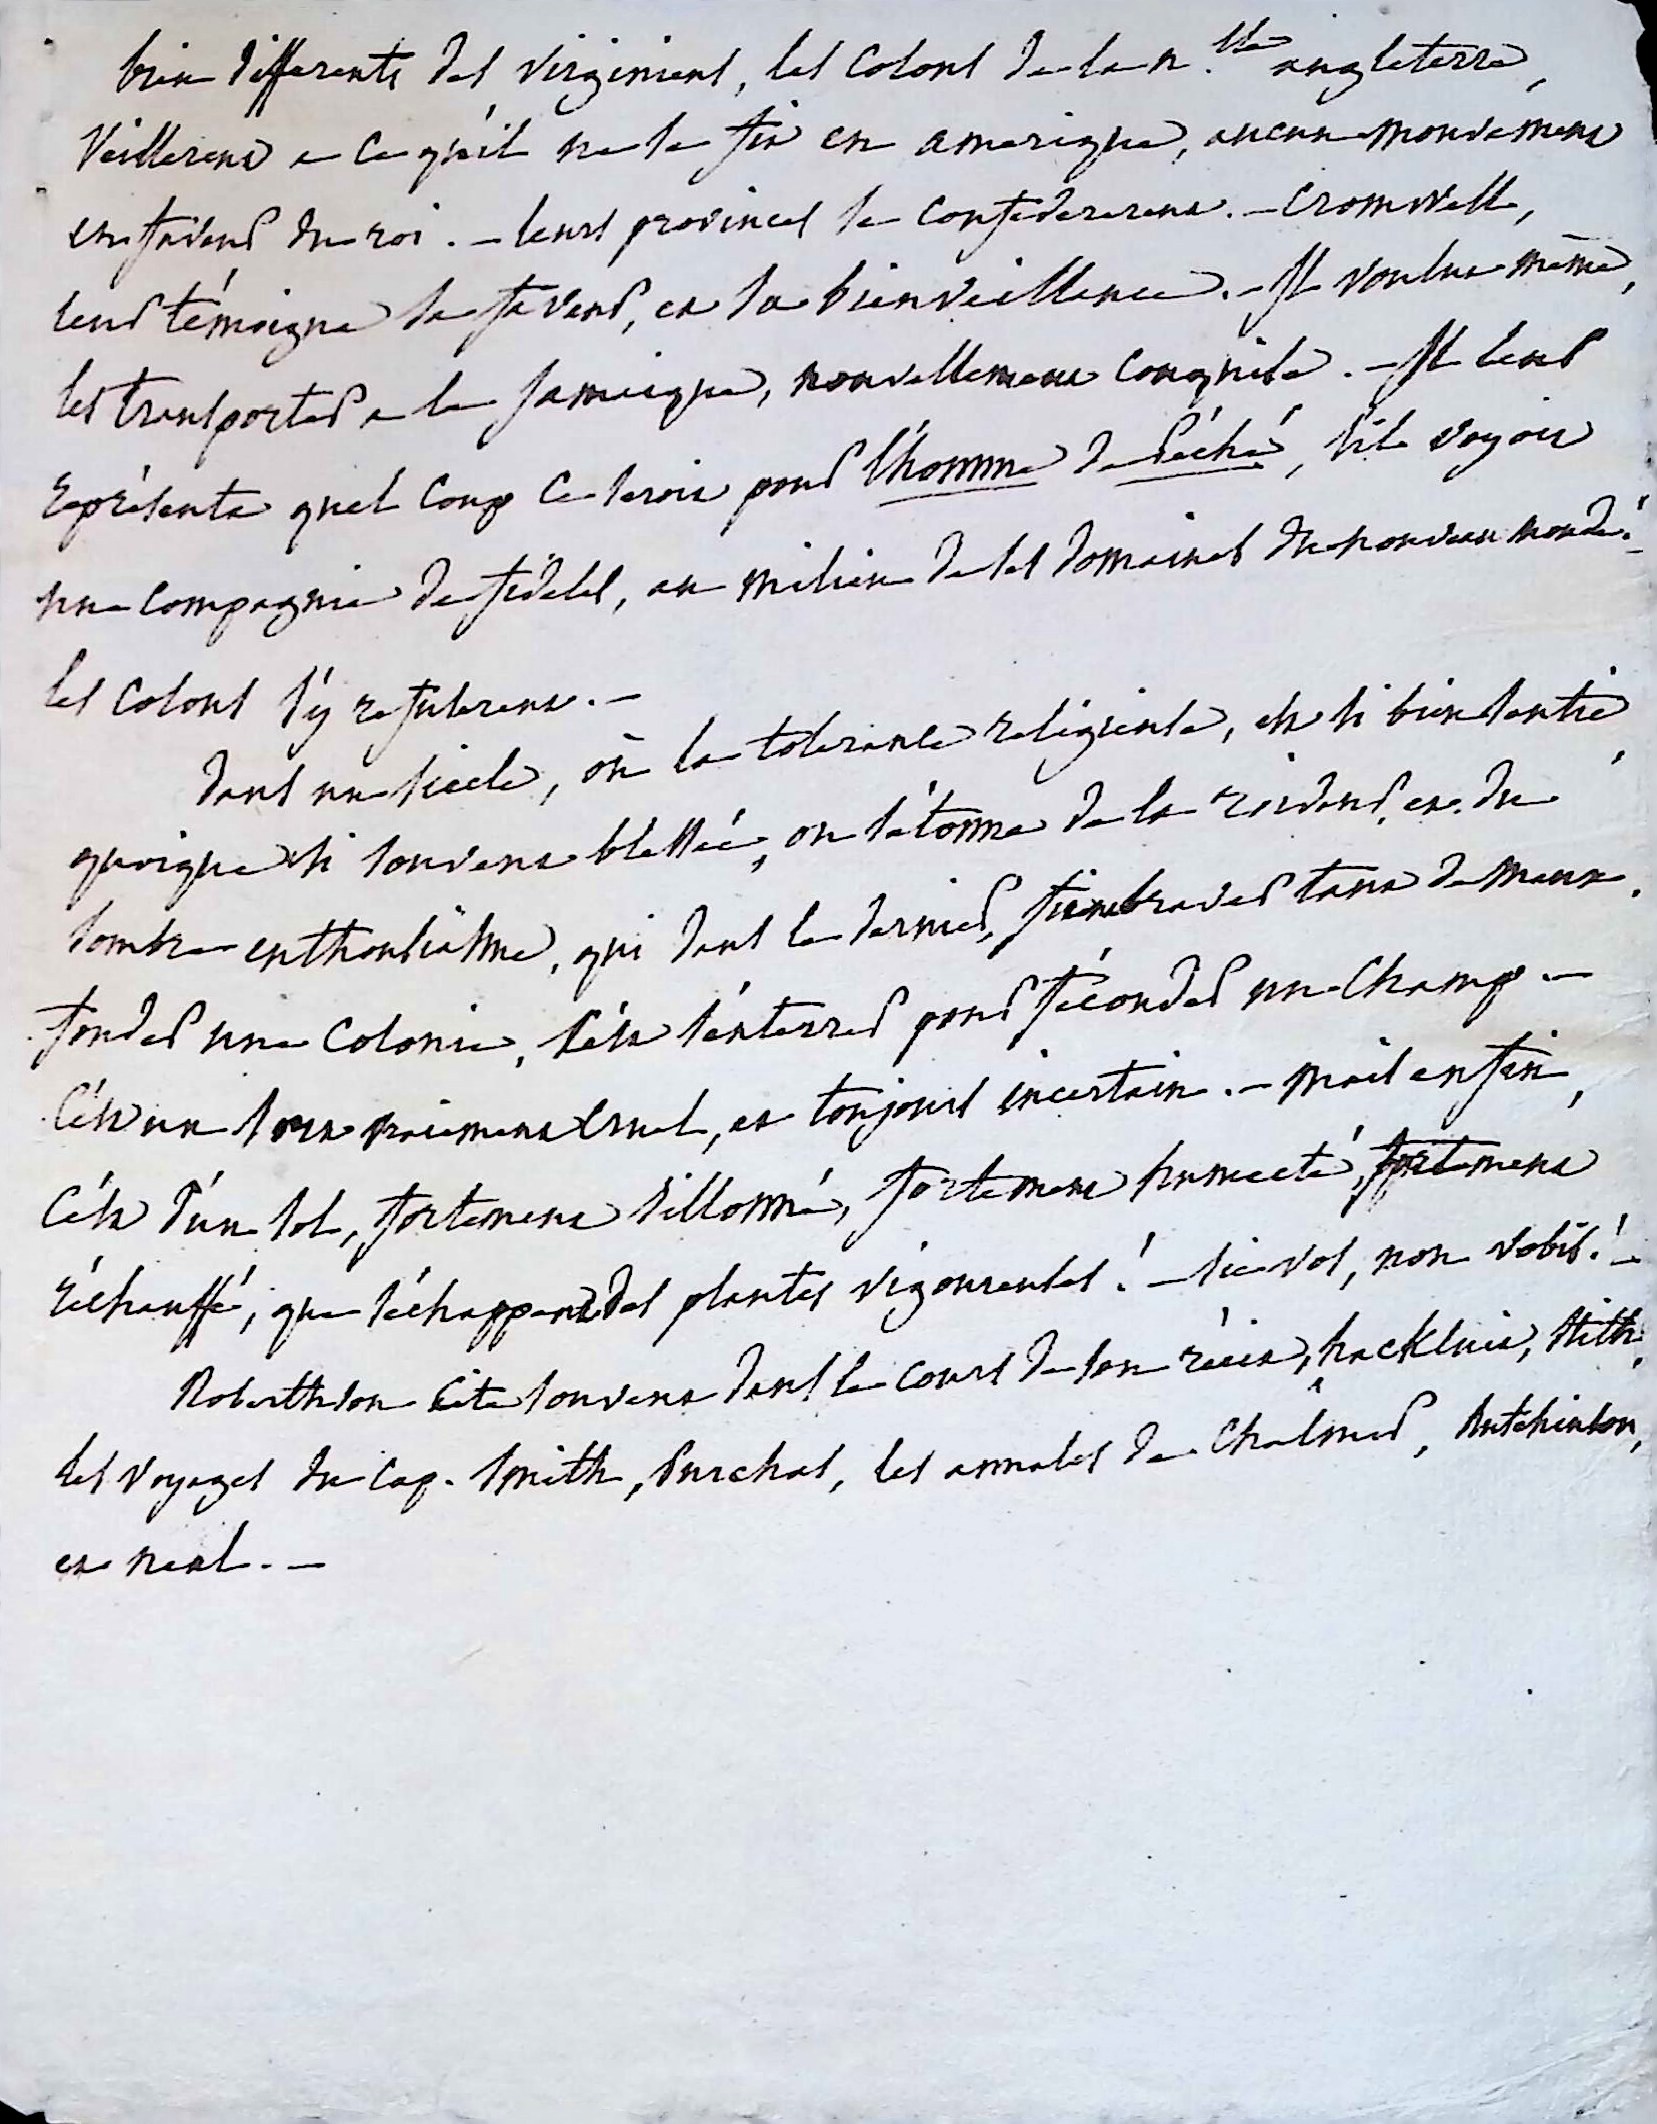 bien differents des virginiens, les colons de la n.lle angleterre,
veillerent a ce qu'il ne se fit en amerique, aucun mouvement
en faveur du roi. - leurs provinces se confedererent. - Cromwell,
leur témoigna sa faveur, et sa bienveillance. - Il voulut même,
les transporter a la Jamaique, nouvellement conquise. - Il leur
représenta quel coup ce seroit pour l'homme de péché, s'il voyoit
une compagnie de fidèles, au milieu de ses domaines du nouveau monde!
les colons s'y refuserent. -
dans un siecle, où la tolerance religieuse, est si bien sentie,
quoique si souvent blessée, on s'étonne de la roideur, et du
sombre enthousiasme, qui dans le dernier, fit braver tant de maux.
fonder une colonie, c'est s'enterrer pour féconder un champ -
C'est un sort vraiment cruel, et toujours incertain. - mais enfin,
C'est d'un sol, fortement sillonné, fortement humecté, fortement
réchauffé, que s'échappent des plantes vigoureuses! - sic vos, non vobis! -
Roberthson cite souvent dans le cours de son récit, hackluit, Stith,
les voyages du cap. Smith, Purchas, les annales de Chalmer, hutchinson,
et neal. -